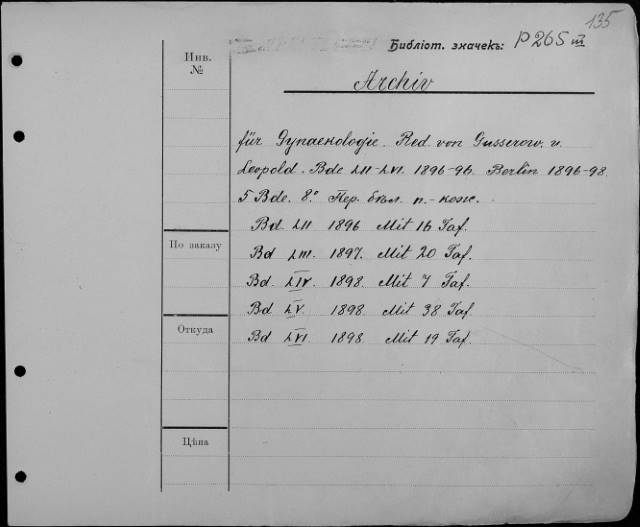 135
Библіот. значекъ: P 265 III
Инв. №
Archiv
für Gynaeкologie. Red. von Gusserow. u.
Leopold. Bde LII-LVI. 1896-96. Berlin 1896-98.
5 Bde. 8.° Пер. бѣл. п.-кож.
Bd. LII 1896 Mit 16 Taf.
По заказу
Bd LIII. 1897. Mit 20 Taf.
Bd. LIV. 1898. Mit 7 Taf.
Bd LV. 1898. Mit 38 Taf.
Откуда
Bd LVI. 1898. Mit 19 Taf.
Цѣна